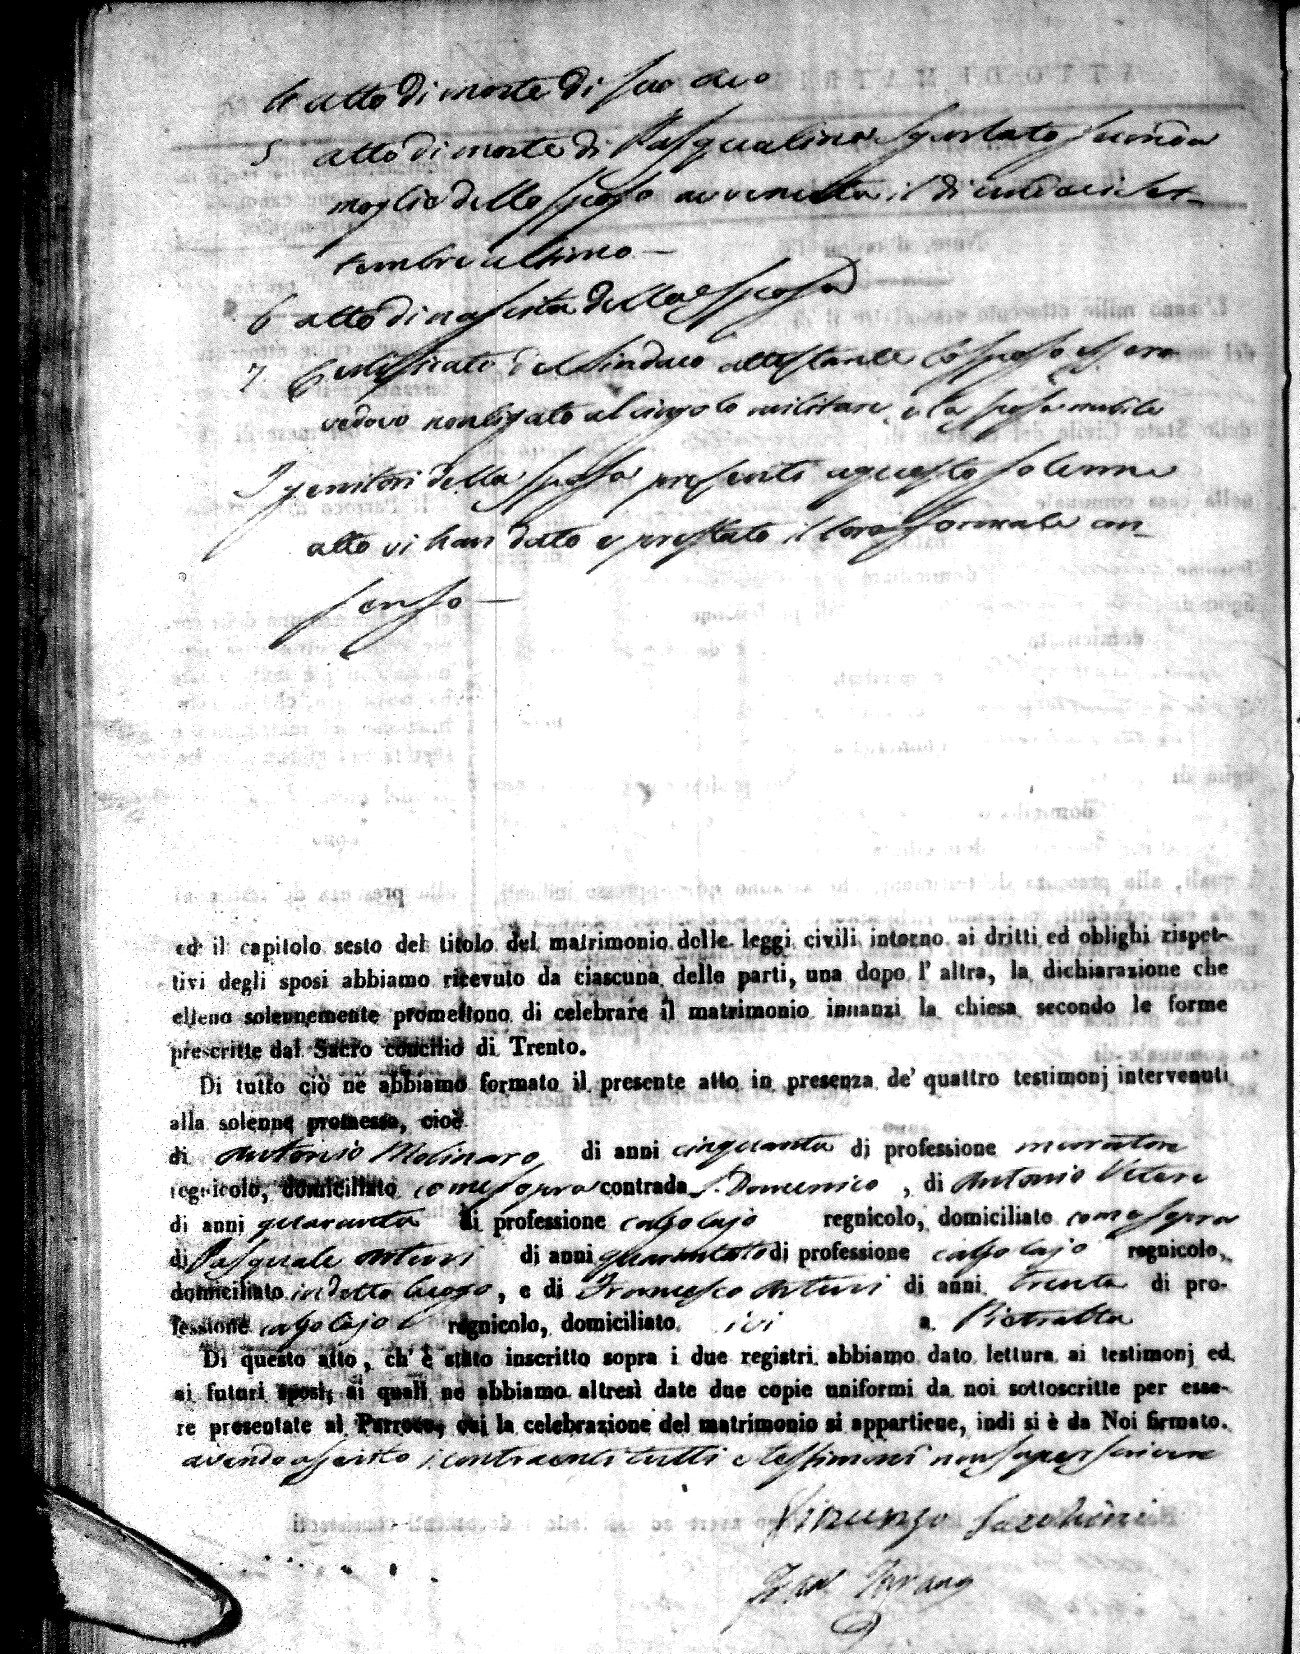 4 atto di morte di suo avo
5 atto di morte di Pasqualina seconda
moglie dello sposo avvenuta il di undici Set-
tembre ultimo —
6 atto di nascita della sposa
7 Certificato del Sindaco attestante lo sposo essere
vedovo non ligato al cingolo militare, e la sposa nubile
I genitori della sposa presenti a questo solenne
atto vi han dato e prestato il loro formale con-
senso —
ed il capitolo sesto del titolo del matrimonio delle leggi civili intorno ai dritti ed oblighi rispet-
tivi degli sposi abbiamo ricevuto da ciascuna delle parti, una dopo l' altra, la dichiarazione che
elleno solennemente promettono di celebrare il matrimonio innanzi la chiesa secondo le forme
prescritte dal Sacro concilio di Trento.
Di tutto ciò ne abbiamo formato il presente atto in presenza de' quattro testimonj intervenuti
alla solenne promessa, cioè
di Antonio Molinaro di anni cinquanta di professione muratore
regnicolo, domiciliato come sopra contrada S. Domenico , di Antonio Vetere
di anni quaranta di professione calzolajo regnicolo, domiciliato come sopra
di Pasquale Arturi di anni quarantotto di professione calzolajo regnicolo,
domiciliato in detto luogo , e di Francesco Arturi di anni trenta di pro-
fessione calzolajo regnicolo, domiciliato ivi a Pietralta
Di questo atto, ch' è stato inscritto sopra i due registri abbiamo dato lettura ai testimonj ed
ai futuri sposi, ai quali ne abbiamo altresì date due copie uniformi da noi sottoscritte per esse-
re presentate al Parroco, cui la celebrazione del matrimonio si appartiene, indi si è da Noi firmato.
avendo asserito i contraenti tutti e testimoni non saper scrivere